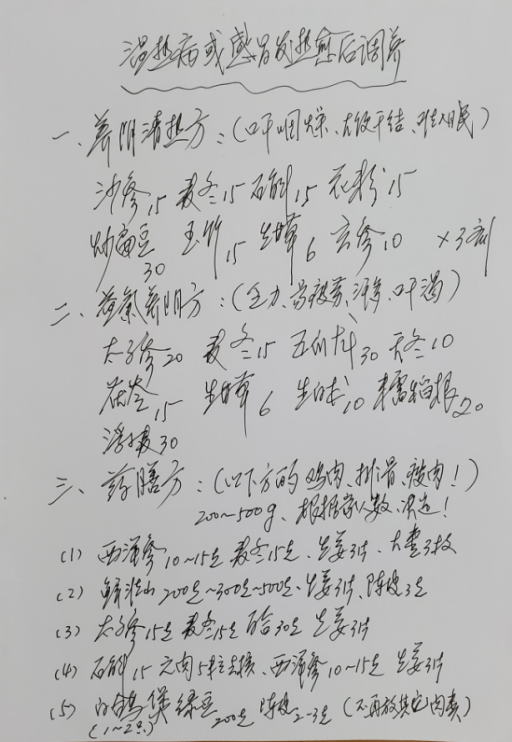 温热病或感冒发热愈后调养
一、养阴清热方:(口干咽燥、大便干结、难入眠)
沙参15 麦冬15 石斛15 花粉15
炒扁豆30 玉竹15 生甘草6 玄参10 ×3剂
二、益气养阴方:(乏力、易疲劳、汗多、口渴)
太子参20 麦冬15 五爪龙30 天冬10
茯苓15 生甘草6 生白术10 糯稻根20
浮小麦30
三、药膳方:(以下方的鸡肉、排骨、瘦肉!)
200~500g、根据家人数决定!
(1) 西洋参10~15克 麦冬15克、生姜3片、大枣3枚
(2) 鲜淮山200克~300克~500克、生姜3片、陈皮3克
(3) 太子参15克 麦冬15克 百合30克 生姜3片
(4) 石斛15 元肉5粒去核、西洋参10~15克 生姜3片
(5) 白鸽煲绿豆200克 陈皮2-3克 (不再放其它肉类)
(1~2只)